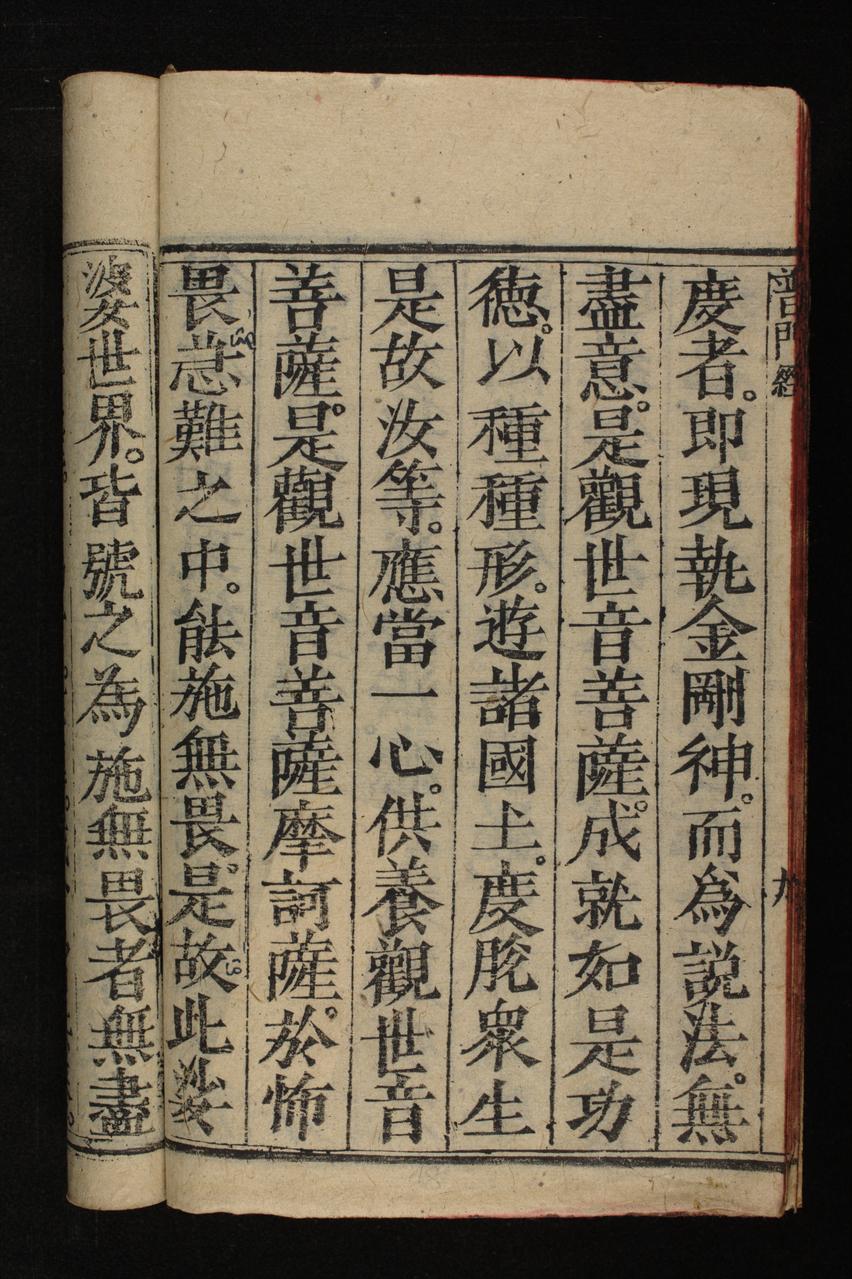 普門經 九
度者。即現執金剛神。而為説法。無
盡意。是觀世音菩薩。成就如是功
德。以種種形。遊諸國土。度脫衆生
是故汝等。應當一心。供養觀世音
菩薩。是觀世音菩薩摩訶薩。於怖
畏急難之中。能施無畏。是故此娑
婆世界。皆號之為施無畏者無盡